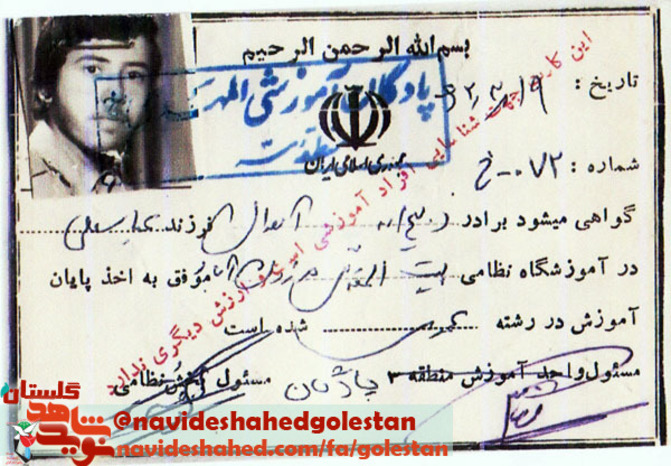 بسم الله الرحمن الرحیم
پادگان آموزشی المهدی
تاریخ : ۶۲/۳/۱۹
جمهوری اسلامی ایران
شماره : ۰۷۲-خ
این کارت جهت شناسایی افراد آموزشی است و ارزش دیگری ندارد
گواهی میشود برادر فرزند عباسعلی
در آموزشگاه نظامی بیت المقدس موفق به اخذ پایان
آموزش در رشته شده است
مسئول واحد آموزش منطقه ۳ مسئول بخش نظامی
گلستان
نوید شاهد
@navideshahedgolestan
navideshahed.com/fa/golestan